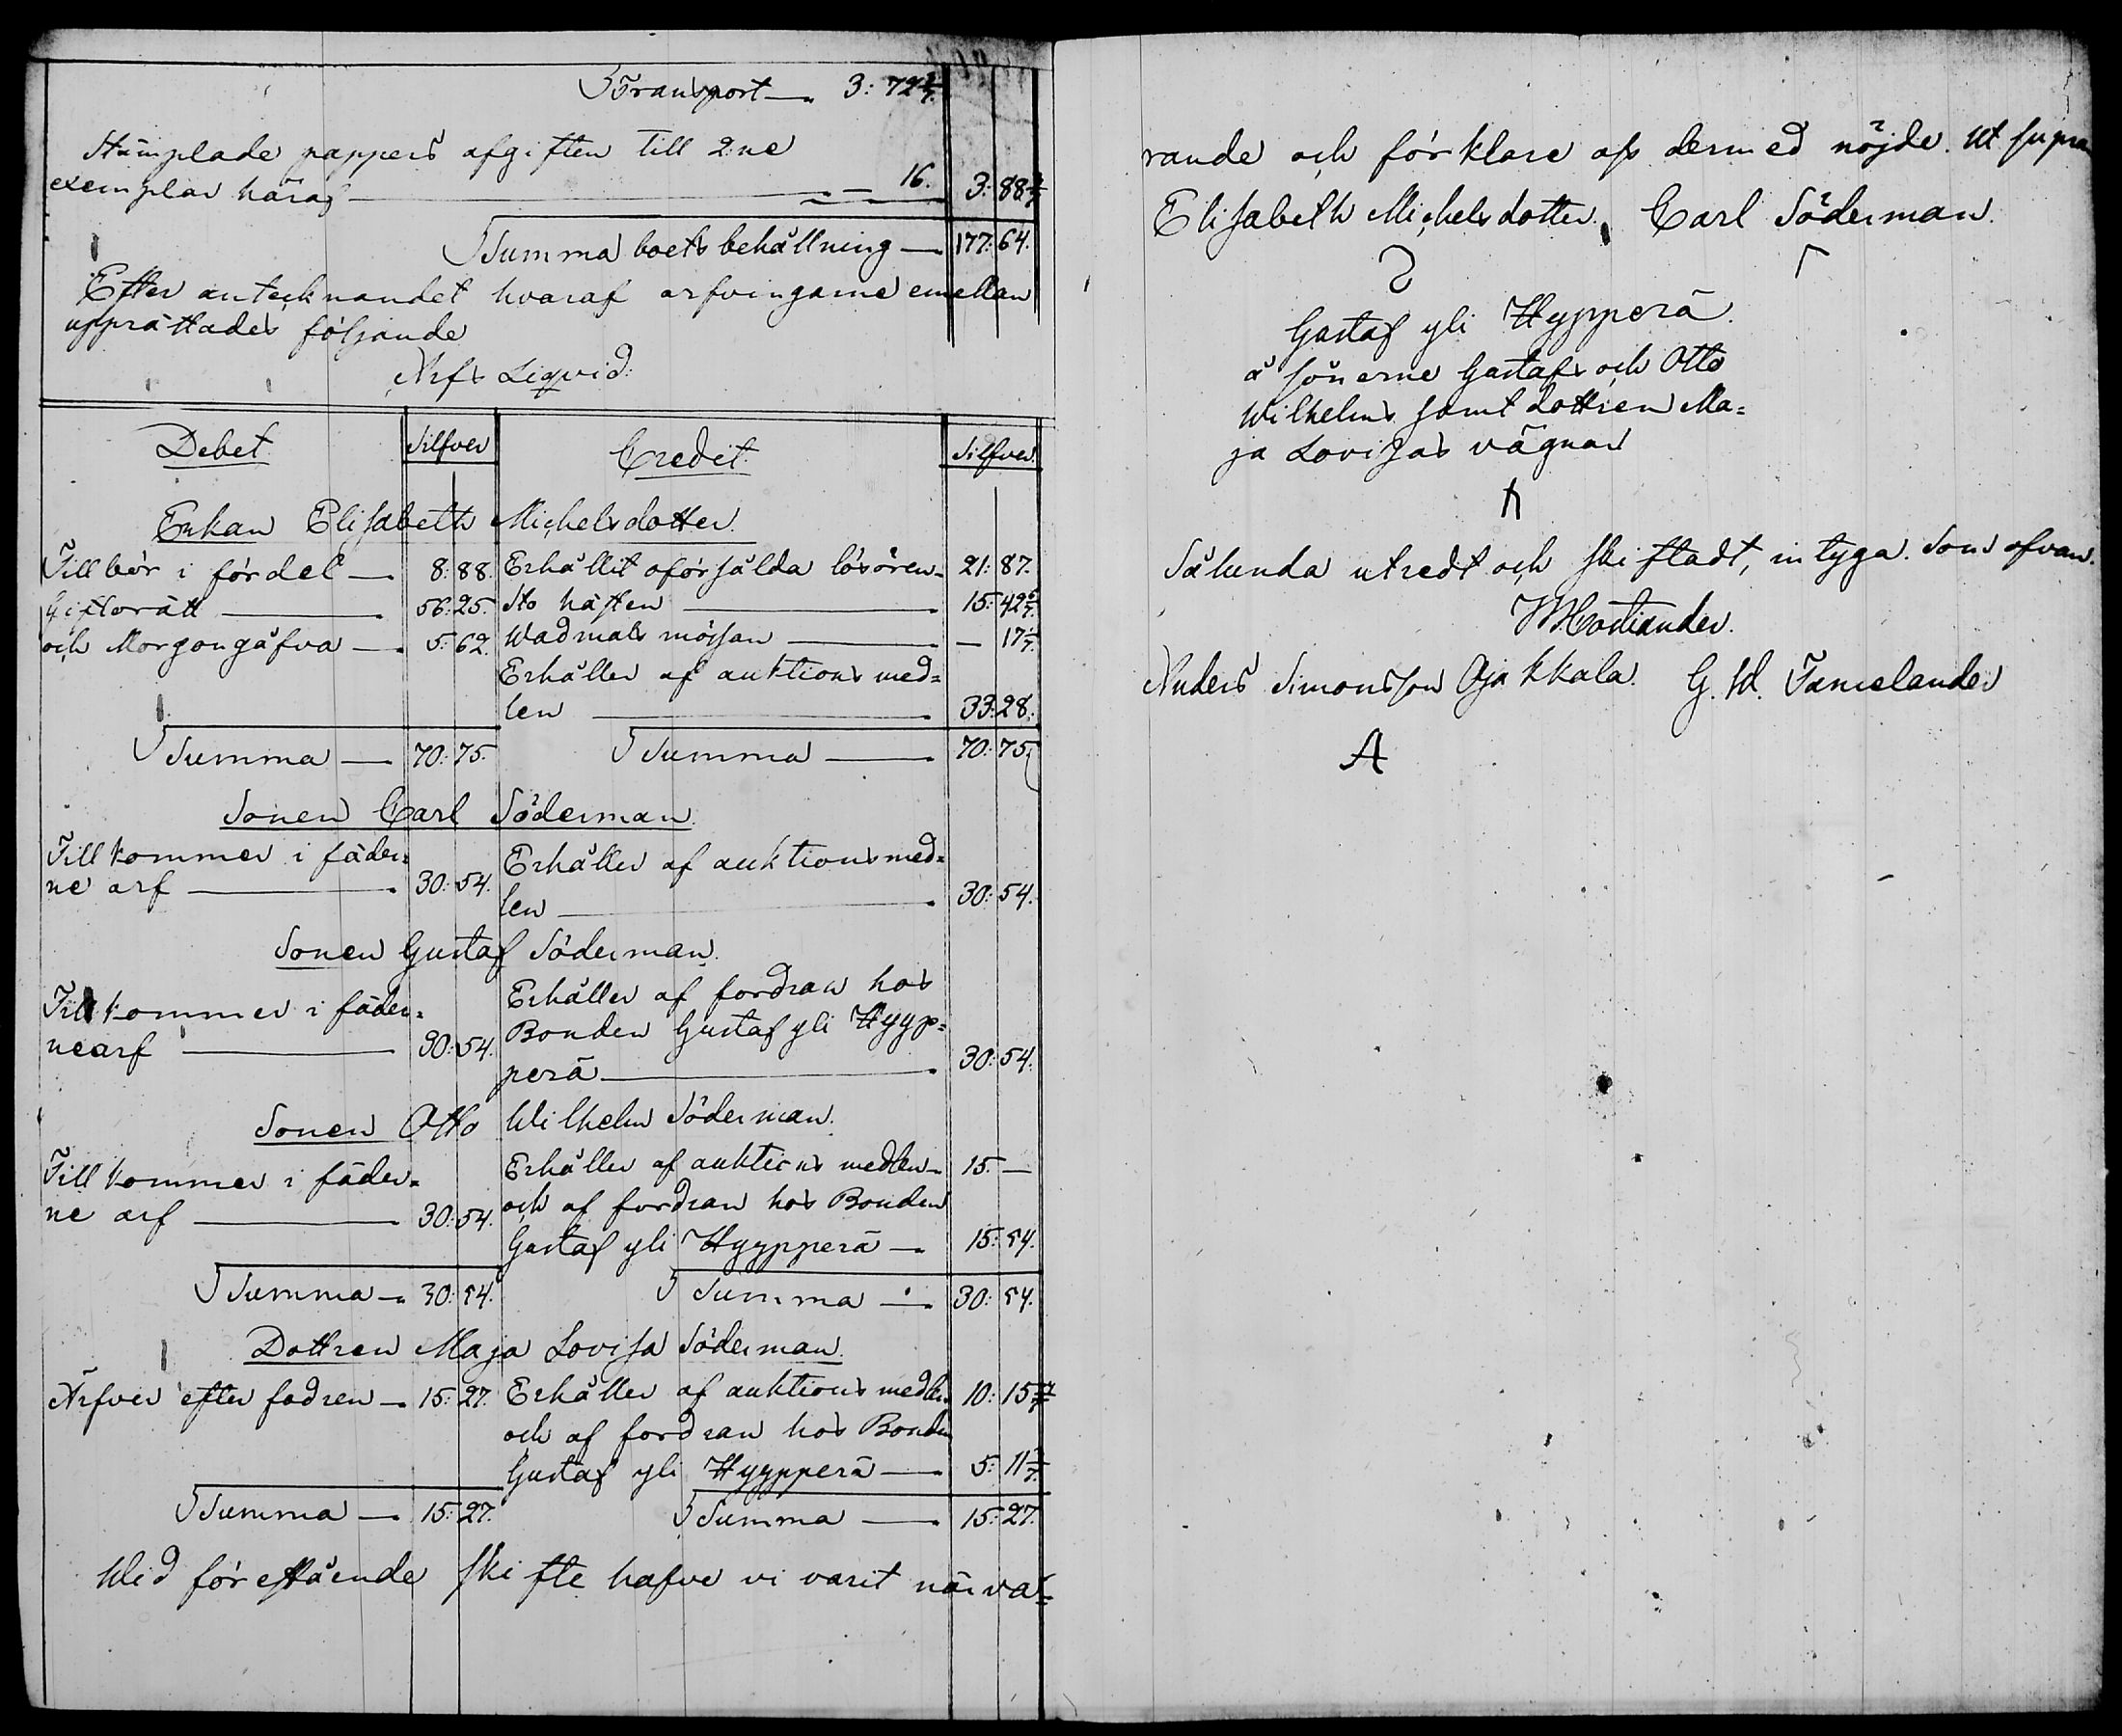 Transport — 3: 72 2/7.
Stämplade pappers afgiften till 2:ne
exemplar häraf — — 16. 3: 88 2/7
Summa boets behållning — 177: 64.
Efter antecknandet hvaraf arfvingarne emellan
upprättades följande
Arfs Liqvid:
Debet. Silfver Credit. Silfver.
Enkan Elisabeth Michelsdotter.
Tillbör i fördel — 8: 88. Erhållit oförsålda lösören — 21: 87.
Giftorätt — 56: 25. Sto hästen — 15: 42 6/7.
och Morgongåfva — 5: 62. Wadmals mössan — — 17 1/7.
Erhåller af auktions med=
len — 33: 28.
Summa — 70: 75. Summa — 70: 75.
Sonen Carl Söderman.
Till kommer i fäder= Erhåller af auktions med=
ne arf — 30: 54. len — 30: 54.
Sonen Gustaf Söderman.
Till kommer i fäder= Erhåller af fordran hos
nearf — 30: 54. Bonden Gustaf yli Hyyp=
perä — 30: 54.
Sonen Otto Wilhelm Söderman.
Till kommer i fäder= Erhåller af auktions medlen — 15. —
ne arf — 30: 54. och af fordran hos Bonden
Gustaf yli Hyypperä — 15: 54.
Summa — 30: 54. Summa — 30: 54.
Dottren Maja Lovisa Söderman.
Ärfver efter fadren — 15: 27. Erhåller af auktions medlen 10: 15 5/7
och af fordran hos Bonden
Gustaf yli Hyypperä — 5: 11 2/7.
Summa — 15: 27. Summa — 15: 27.
Wid förestående skifte hafve vi varit närva=
rande och förklare oss dermed nöjde. Ut supra
Elisabeth Michelsdotter. Carl Söderman.
Gustaf yli Hyypperä.
å sönerne Gustafs och Otto
Wilhelms samt dottren Ma=
ja Lovisas vägnar
Sålunda utredt och skiftadt, intyga. Som ofvan.
Anders Simonsson Ojakkala. G. W. Tamelander
A